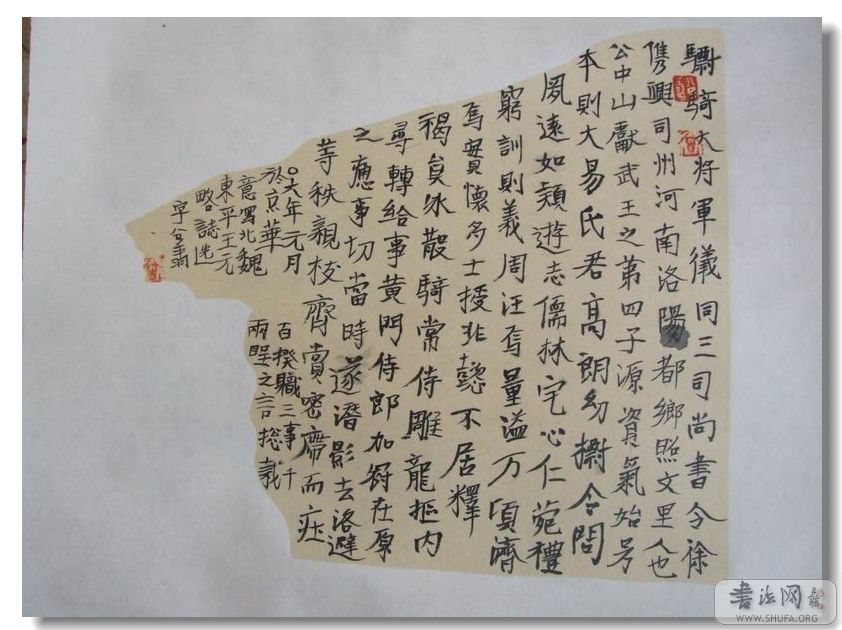 驃騎大将軍儀同三司尚書令徐
儁興司州河南洛陽都鄉照文里人也
公中山獻武王之第四子源資氣始号
本則大易氏君高朗幼令問
夙遠如穎遊志儒林宅心仁苑禮
窮訓則義周汪焉量溢万頃濟
焉實懷多士授非懿不居釋
褐員外散騎常侍雕龍樞内
尋轉給事黄門侍郎加爵在原
之應事切當時遂潜影去洛避
等秩親枝齊賞密席而庄
百揆職三事千
兩聖之言總裁
〇六年元月
於京華
意写北魏
東平王元
略誌选
书法网
WWW.SHUFA.ORG